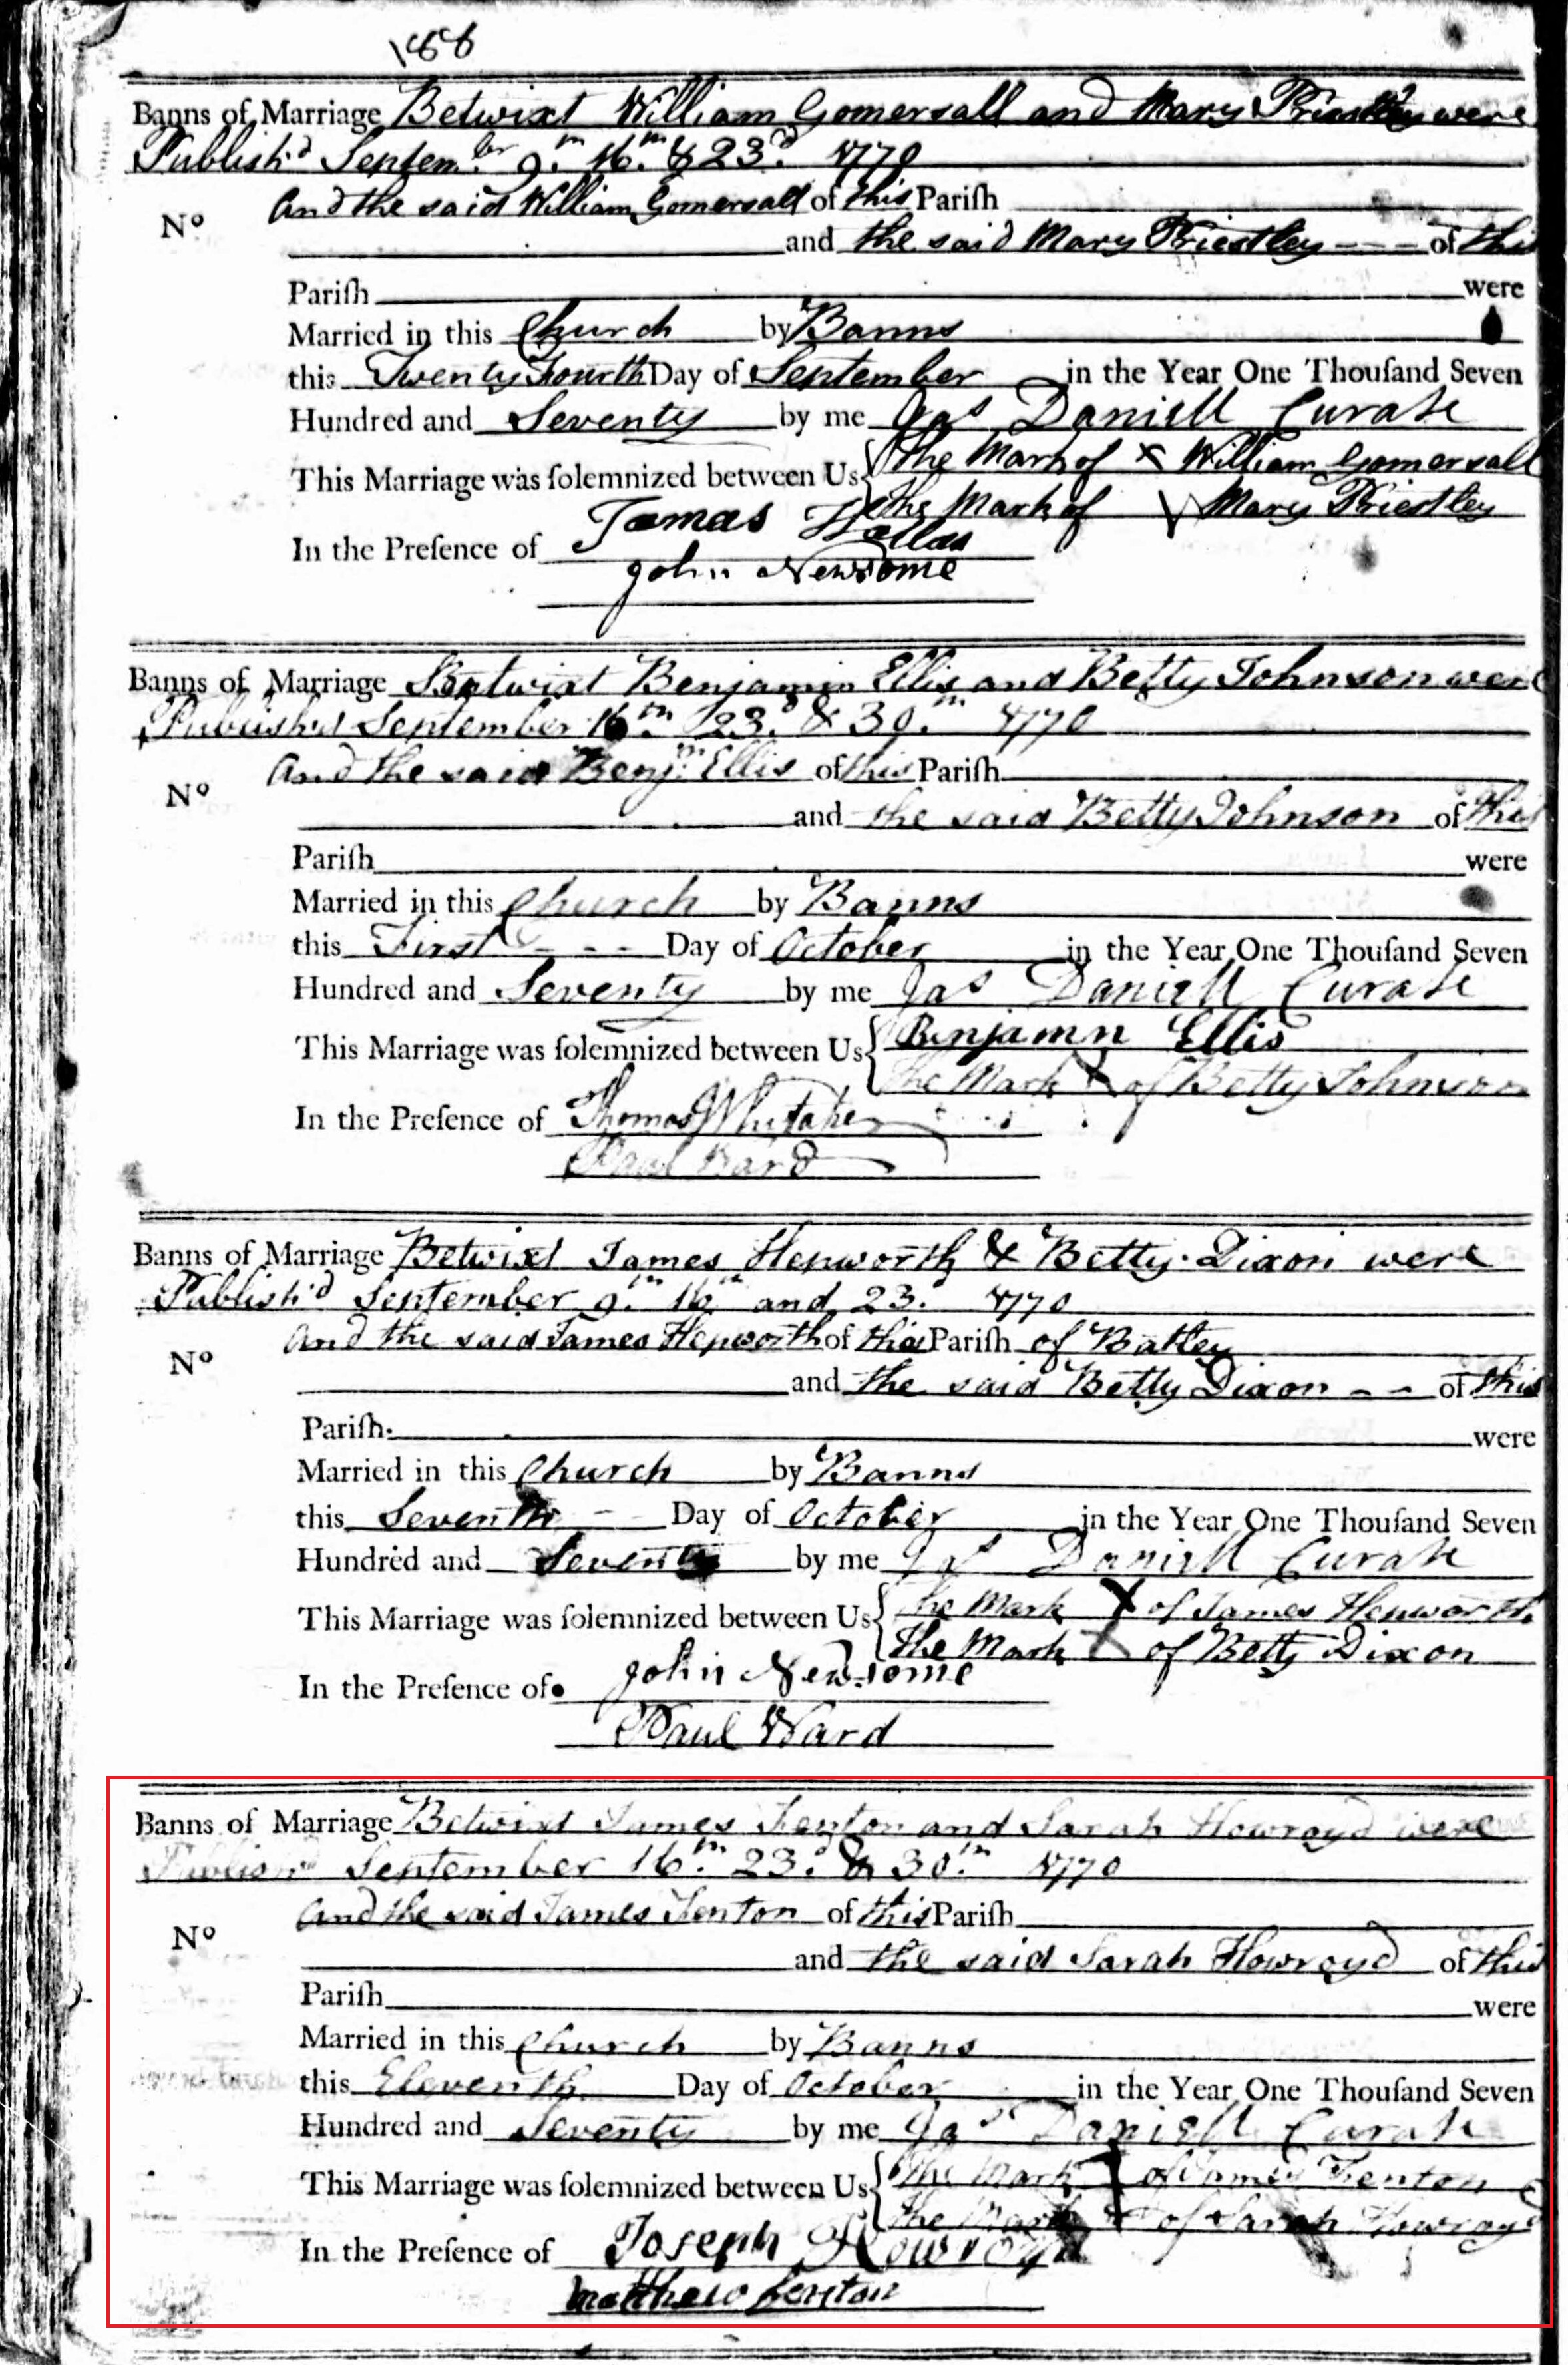 188
Banns of Marriage Betwixt William Gomersall and Mary Priestley were
Publish'd Septem.ber 9.th 16.th & 23.d 1770
And the said William Gomersall of this Pariſh
No
and the said Mary Priestley --- of this
Pariſh were
Married in this Church by Banns
this Twenty Fourth Day of September in the Year One Thouſand Seven
Hundred and Seventy by me Jas Daniell Curate
This Marriage was ſolemnized between Us { The Mark of x William Gomersall
the Mark of V Mary Priestley
In the Preſence of Jomas
John Newsome
Banns of Marriage Betwixt Benjamin Ellis and Betty Johnson were
Published September 16.th 23.d & 30.th 1770
And the said Benj.m Ellis of this Pariſh
No
and the said Betty Johnson of this
Pariſh were
Married in this Church by Banns
this First - - - Day of October in the Year One Thouſand Seven
Hundred and Seventy by me Jas Daniell Curate
This Marriage was ſolemnized between Us { Benjamn Ellis
The Mark X of Betty Johnson
In the Preſence of Thomas Whitaker
Paul Ward
Banns of Marriage Betwixt James Hepworth & Betty Dixon were
Publish'd September 9.th 16th and 23.d 1770
And the said James Hepworth of the Pariſh of Batley
No
and the said Betty Dixon -- of this
Pariſh were
Married in this Church by Banns
this Seventh - - Day of October in the Year One Thouſand Seven
Hundred and Seventy by me Jas Daniell Curate
This Marriage was ſolemnized between Us { The Mark X of James Hepworth
The Mark X of Betty Dixon
In the Preſence of John Newsome
Paul Ward
Banns of Marriage Betwixt James Fenton and Sarah Howroyd were
Publish'd September 16.th 23.d & 30.th 1770
And the said James Fenton of this Pariſh
No
and the said Sarah Howroyd of this
Pariſh were
Married in this Church by Banns
this Eleventh Day of October in the Year One Thouſand Seven
Hundred and Seventy by me Jas Daniell Curate
This Marriage was ſolemnized between Us { The Mark of James Fenton
The Mark of Sarah Howroyd
In the Preſence of Joseph Howroyd
Matthew Fenton